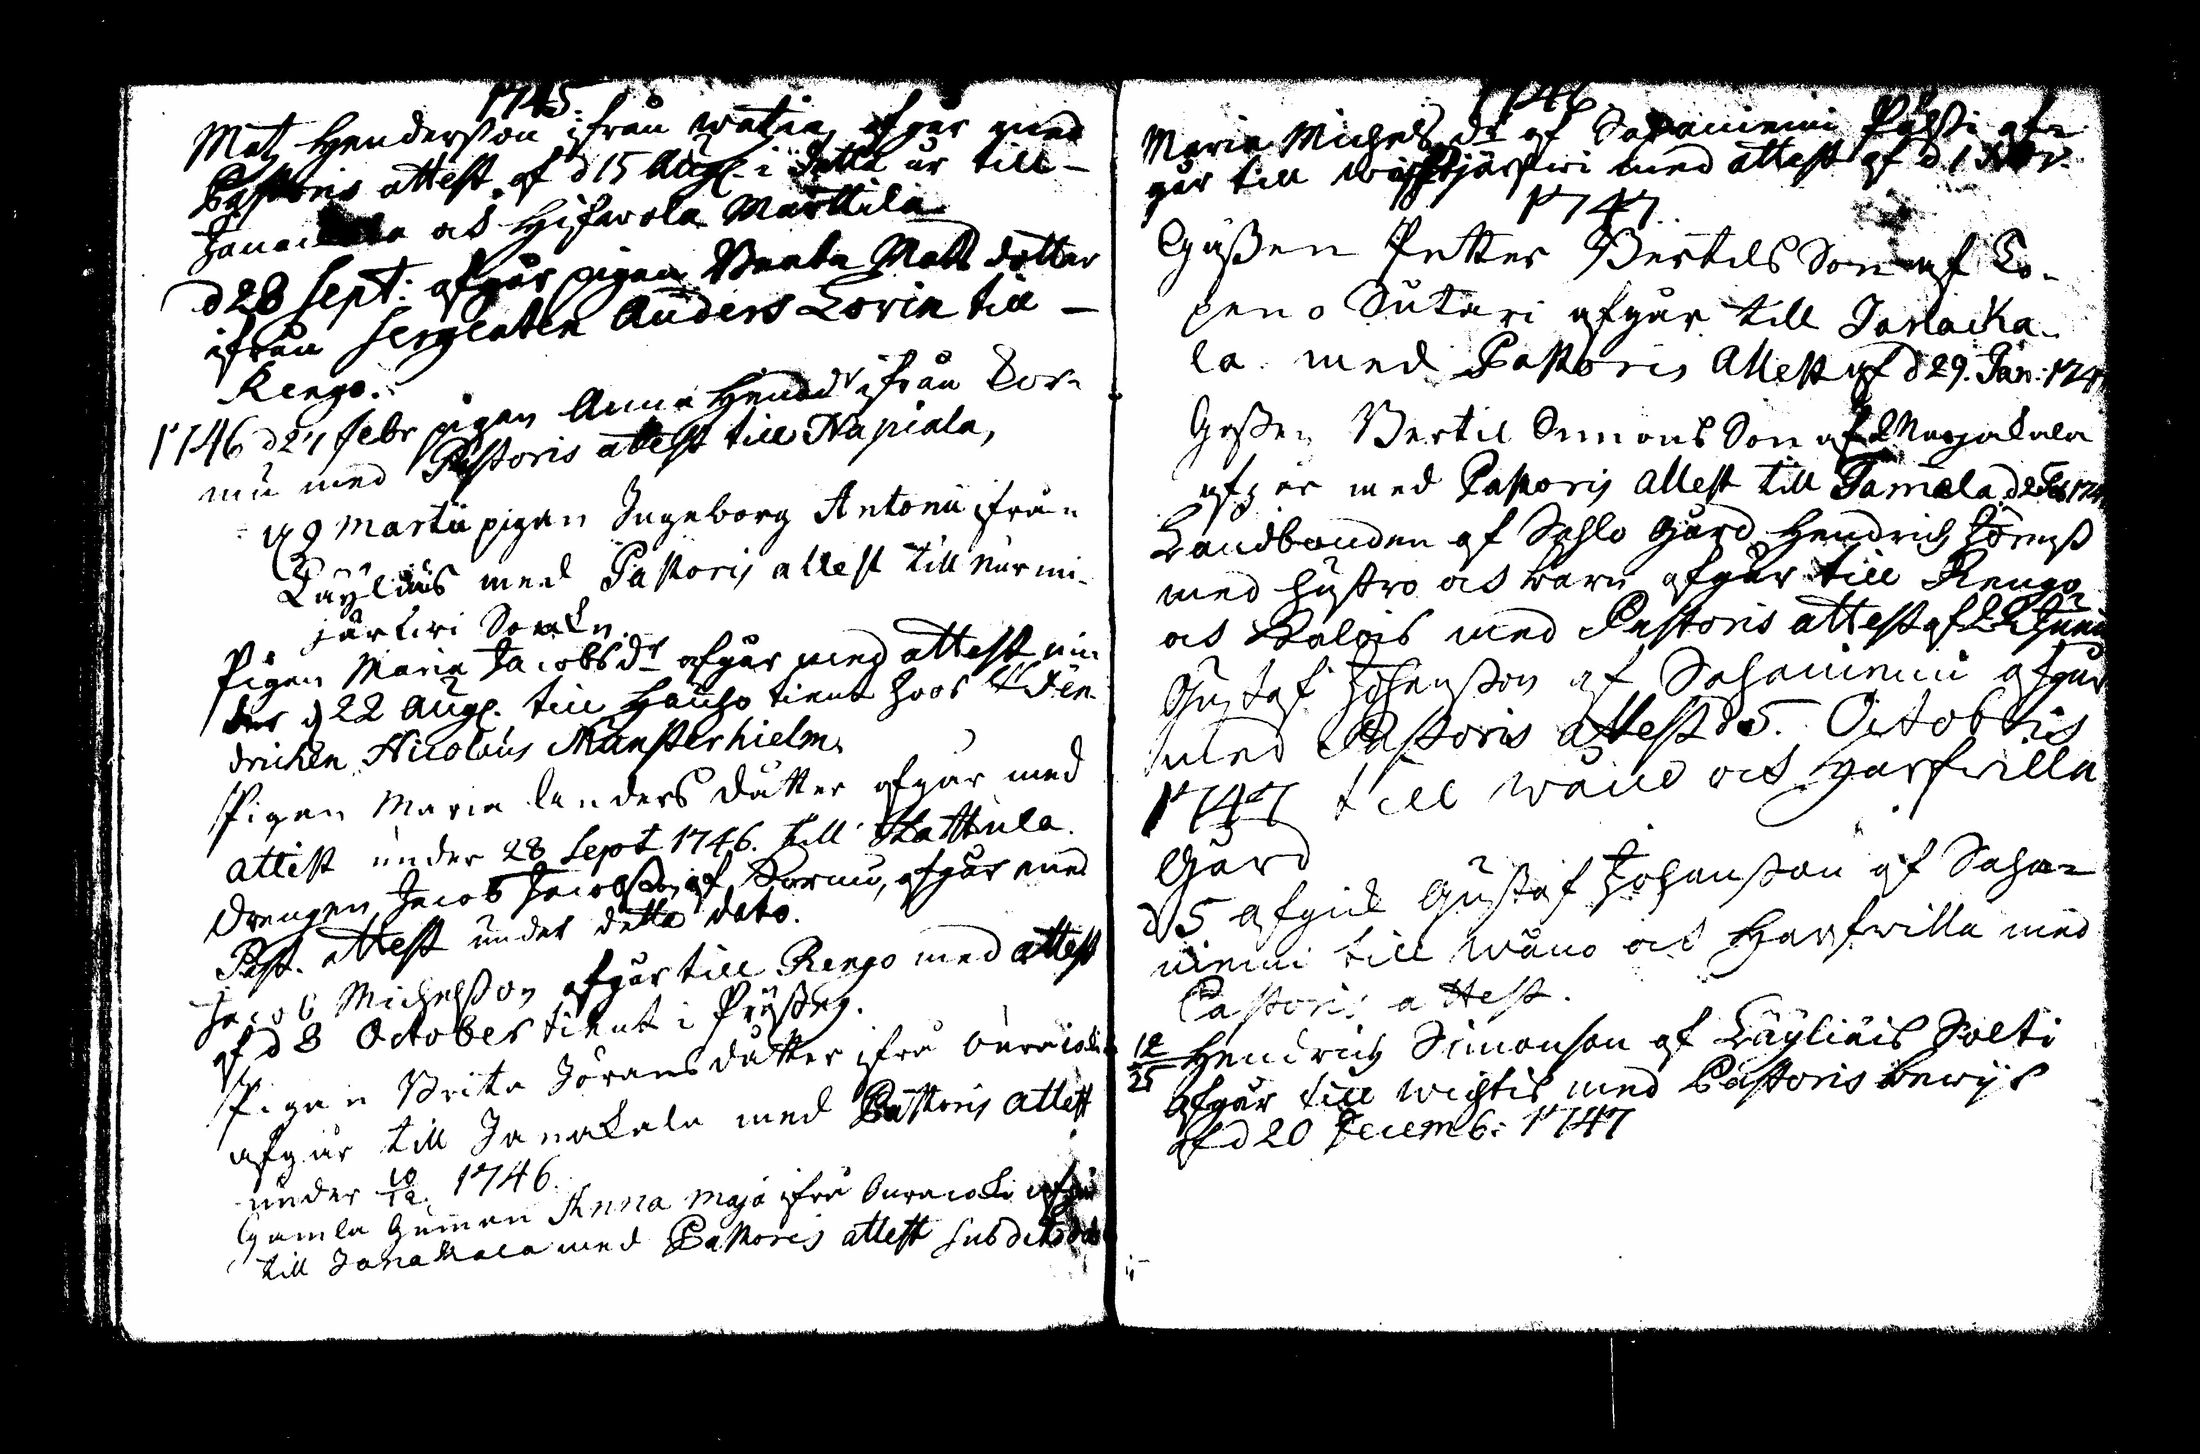 1745.
Matz Henderson ifrån Watia afgår med
Pastoris attest af d 15 Aug. i detta år till
och Hiswola Marttila
d 28 Sept: afgår pigan Beata Mats dotter
ifrån Sergeaten Anders Lorin till
Rengo.
1746 d 24 Febr pigan Anna Hend dr ifrån Kor-
mu med Pastoris attest till Napiala,
d 9 Martii pigan Ingeborg Antonii ifrån
Läyliäis med Pastoris attest till Nurmi-
järkvi Sokn
Pigan Maria Jacobs dr afgår med attest un-
der d 22 Aug. till Hauho tient hoos Fän
driken Nicolaus Munsterhielm.
Pigan Maria Anders dåtter afgår med
attest under 28 Sept 1746. till Hattula.
Drengen Jacob Jacobsson af Kormu, afgår med
Past. attest under detta dato.
Jacob Michelsson afgår till Rengo med attest
af d 8 October tient i
Pigan Brita Jörans dåtter ifrå Ourajoki
afgår till Janakala med Pastoris attest
under 10/12. 1746.
Gamla Gumman Anna Maja ifrå Ourajoki afgår
till Janakala med Pastoris attest sub dito dato
1746.
Maria Michels dr af Sajaniemi Pålsi af-
går till med attest af d 1 Nov.
1747.
Gåssen Petter Bertils Son af Ko-
peno Sutari afgår till Janacka-
la med Pastoris Attest af d 29. Jan: 174
Gossen Bertil Simons Son af
afgår med Pastoris Attest till Tamela d 2 Feb 174
Landbonden af Sahlo Gård Hendrich Jörenss
med hustro och barn afgår till Rengo
och Kalois med Pastoris attest af Junii
Gustaf Johansson af Sajaniemi afgår
med Pastoris attest d 5. Octobris
1747 till Wånå och Harfwilla
Gård
d 5 afgick Gustaf Johansson af Saja-
niemi till Wåno och Harfwilla med
Pastoris attest.
12/25 Hendrich Simonson af Läyliäis Solti
afgår till Wichtis med Pastoris bewijs
af d 20 Decemb: 1747